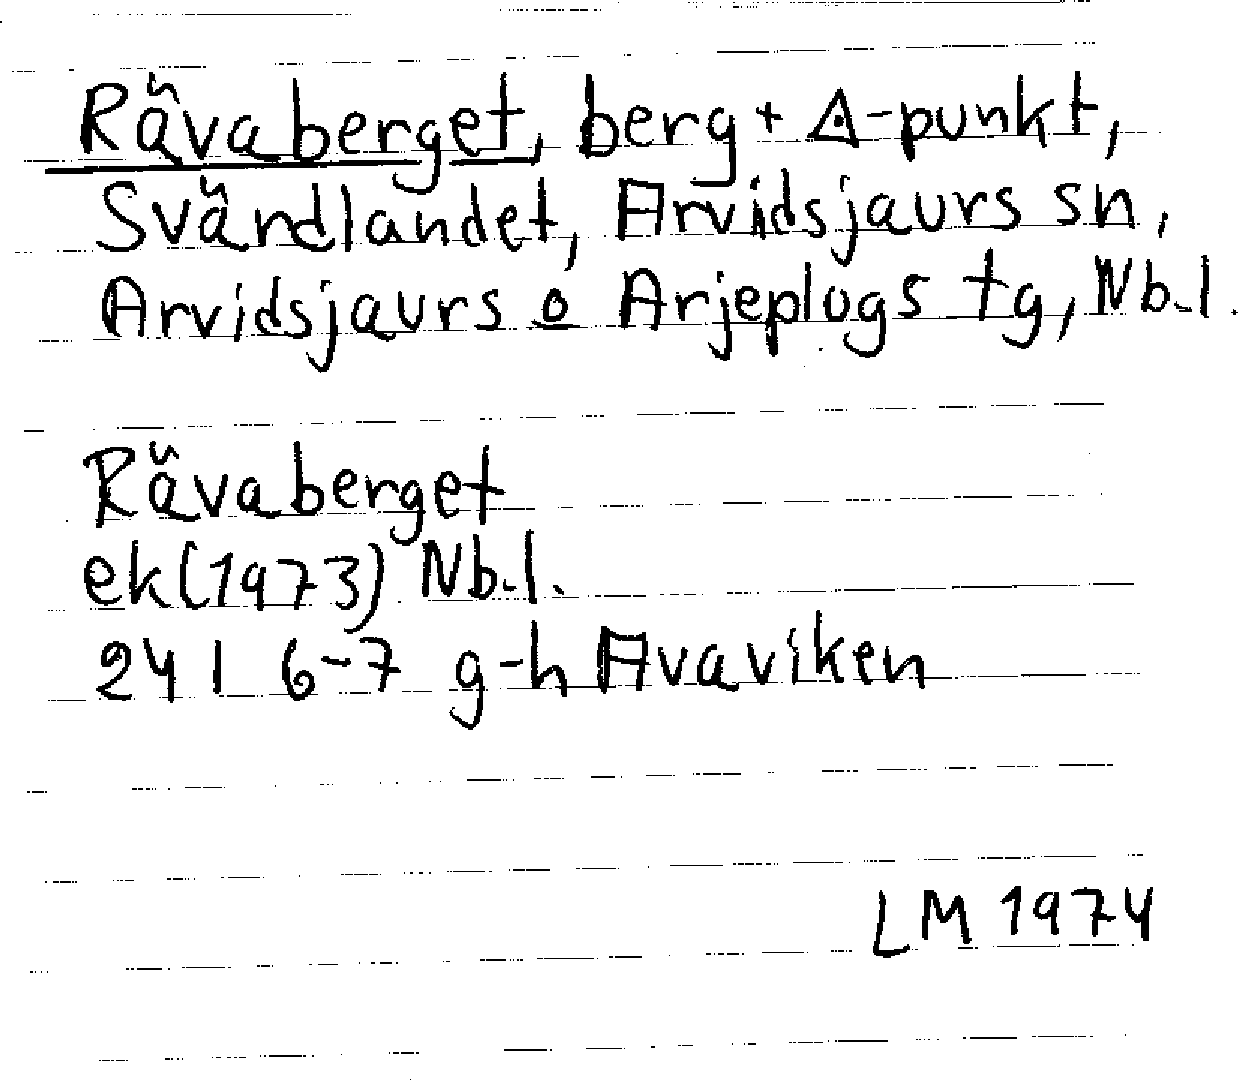 Rävaberget, berg + ◬-punkt,
Svärdlandet, Arvidsjaurs sn,
Arvidsjaurs o Arjeplogs tg, Nb.l.
Rävaberget
ek(1973) Nb.l.
24 I 6-7 g-h Avaviken
LM 1974